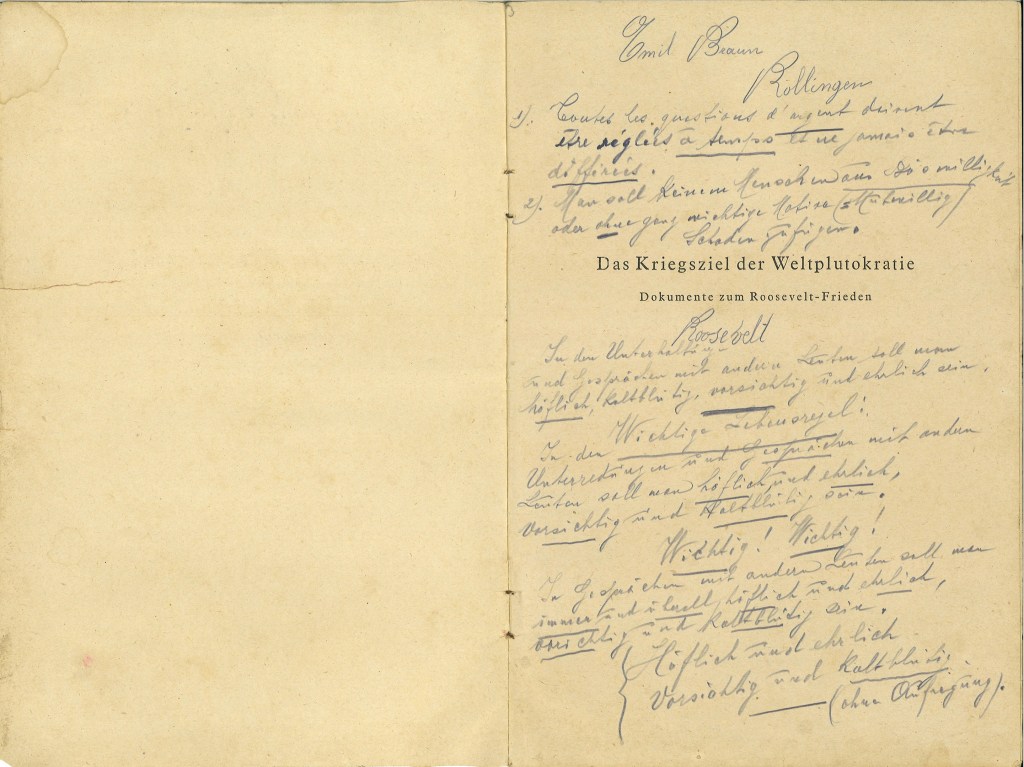 Emil Braun
Röllingen
1). Toutes les questions d'argent doivent
être réglées à temps et ne jamais être
différées.
2). Man soll keinem Menschen aus Böswilligkeit
oder ohne ganz wichtige Motive (=Mutwillig)
Schaden zufügen.
Das Kriegsziel der Weltplutokratie
Dokumente zum Roosevelt-Frieden
Roosevelt
In den Unterhaltun-
und Gesprächen mit andern Leuten soll man
höflich, kaltblütig, vorsichtig und ehrlich sein.
Wichtige Lebensregel!
In den
Unterredungen und Gesprächen mit andern
Leuten soll man höflich und ehrlich,
vorsichtig und kaltblütig sein.
Wichtig! Wichtig!
In Gesprächen mit andern Leuten soll man
immer und überall, höflich und ehrlich,
vorsichtig und kaltblütig sein.
Höflich und ehrlich
Vorsichtig und kaltblütig.
(ohne Aufregung).